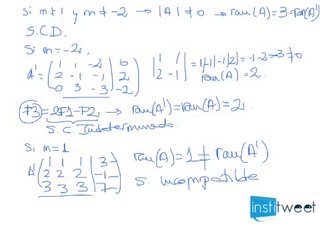 Si m ≠ 1 y m ≠ -2 → |A| ≠ 0 → ran(A) = 3 = ran(A')
S.C.D.
Si m = -2.
A' = ( 1 1 -2 | 6
2 -1 -1 | 2
0 3 -3 | -2 )
| 1 1
2 -1 | = |-1-1·2| = -1-2 = -3 ≠ 0
ran(A) = 2.
F3 = 2F1-F2 → ran(A') = ran(A) = 2.
S.C Indeterminado.
Si m = 1
A' ( 1 1 1 | 3
2 2 2 | -1
3 3 3 | 7 )
ran(A) = 1 ≠ ran(A')
S. Incompatible
institweet